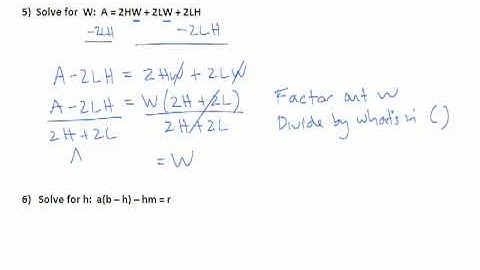 5) Solve for W: A = 2HW + 2LW + 2LH
-2LH -2LH
A-2LH = 2HW + 2LW
A-2LH = W(2H+2L)
2H+2L 2H+2L
Factor out W
Divide by what's in ( )
^ = W
6) Solve for h: a(b – h) – hm = r